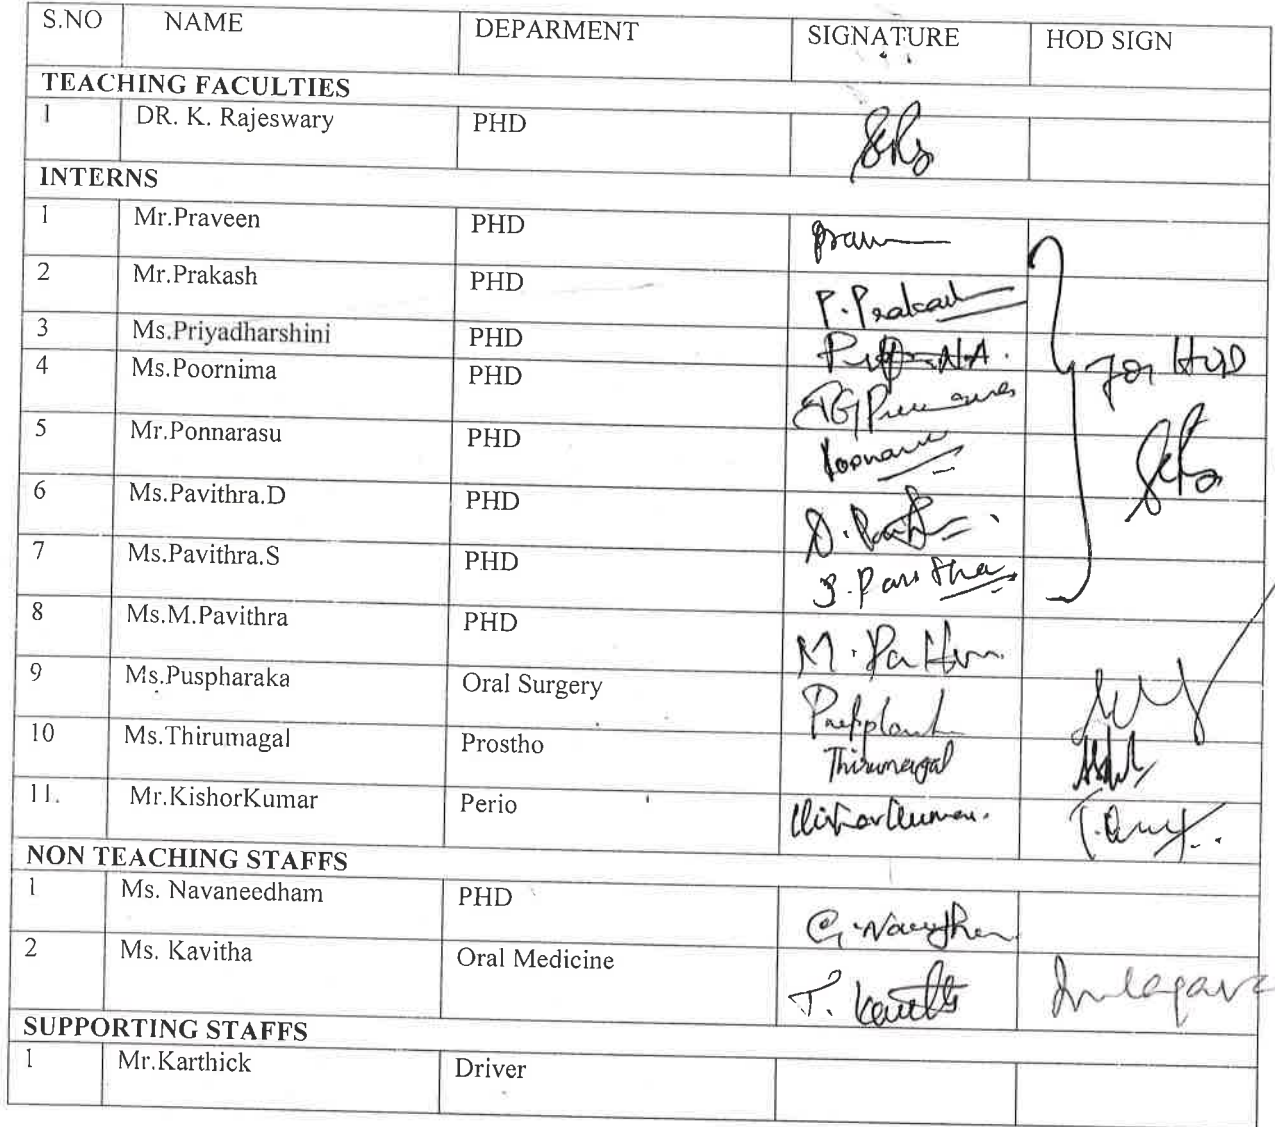 S.NO NAME DEPARMENT SIGNATURE HOD SIGN
TEACHING FACULTIES
1 DR. K. Rajeswary PHD
INTERNS
1 Mr.Praveen PHD
2 Mr.Prakash PHD P. Prakash
3 Ms.Priyadharshini PHD
4 Ms.Poornima PHD for HOD
5 Mr.Ponnarasu PHD
6 Ms.Pavithra.D PHD
7 Ms.Pavithra.S PHD
8 Ms.M.Pavithra PHD
9 Ms.Puspharaka Oral Surgery
10 Ms.Thirumagal Prostho Thirumagal
11. Mr.KishorKumar Perio
NON TEACHING STAFFS
1 Ms. Navaneedham PHD
2 Ms. Kavitha Oral Medicine
SUPPORTING STAFFS
1 Mr.Karthick Driver